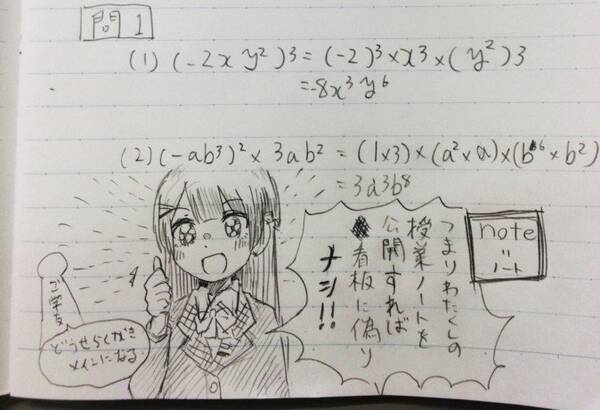 問1
(1) (-2xy²)3 = (-2)³×x³×(y²)3
=-8x³y⁶
(2) (-ab³)²×3ab² = (1×3)×(a²×a)×(b⁶×b²)
=3a³b⁸
note
=
ノート
つまりわたくしの
授業ノートを
公開すれば
看板に偽り
ナシ!!
ご学友
どうせらくがき
メインになる